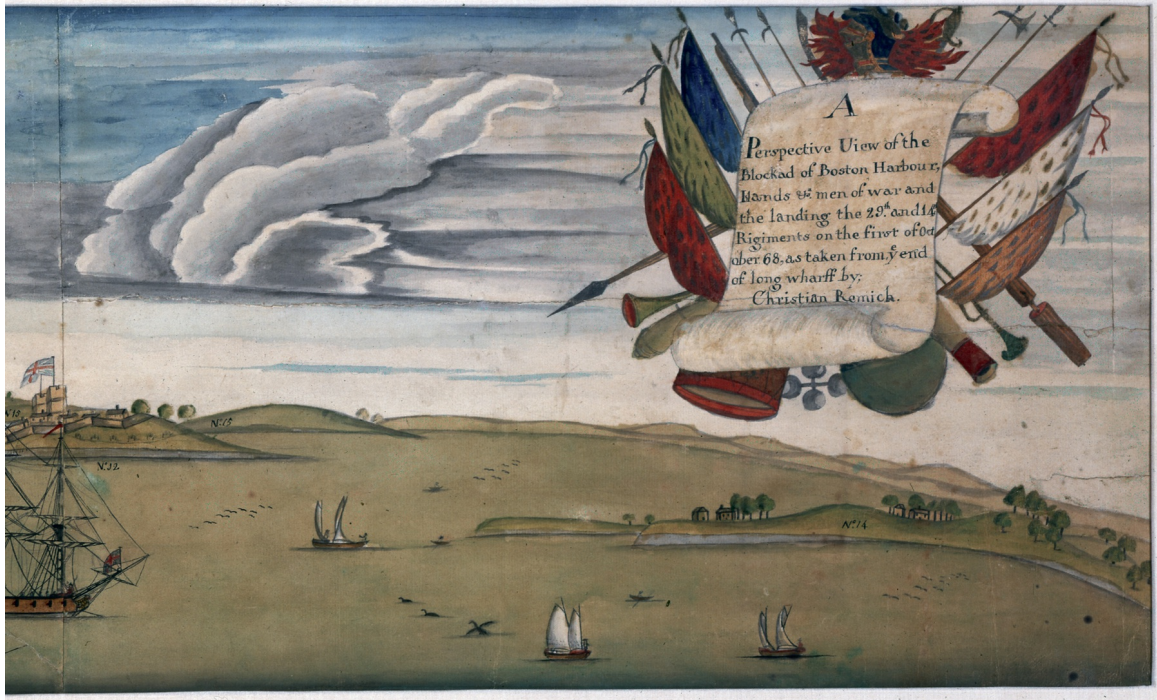 A
Perspective View of the
Blockad of Boston Harbour,
Ilands & men of war and
the landing the 29.th and 14
Rigiments on the first of Oct
ober 68. as taken from ye end
of long wharff by;
Christian Remick.
No.13
No.15
No.12
No.14